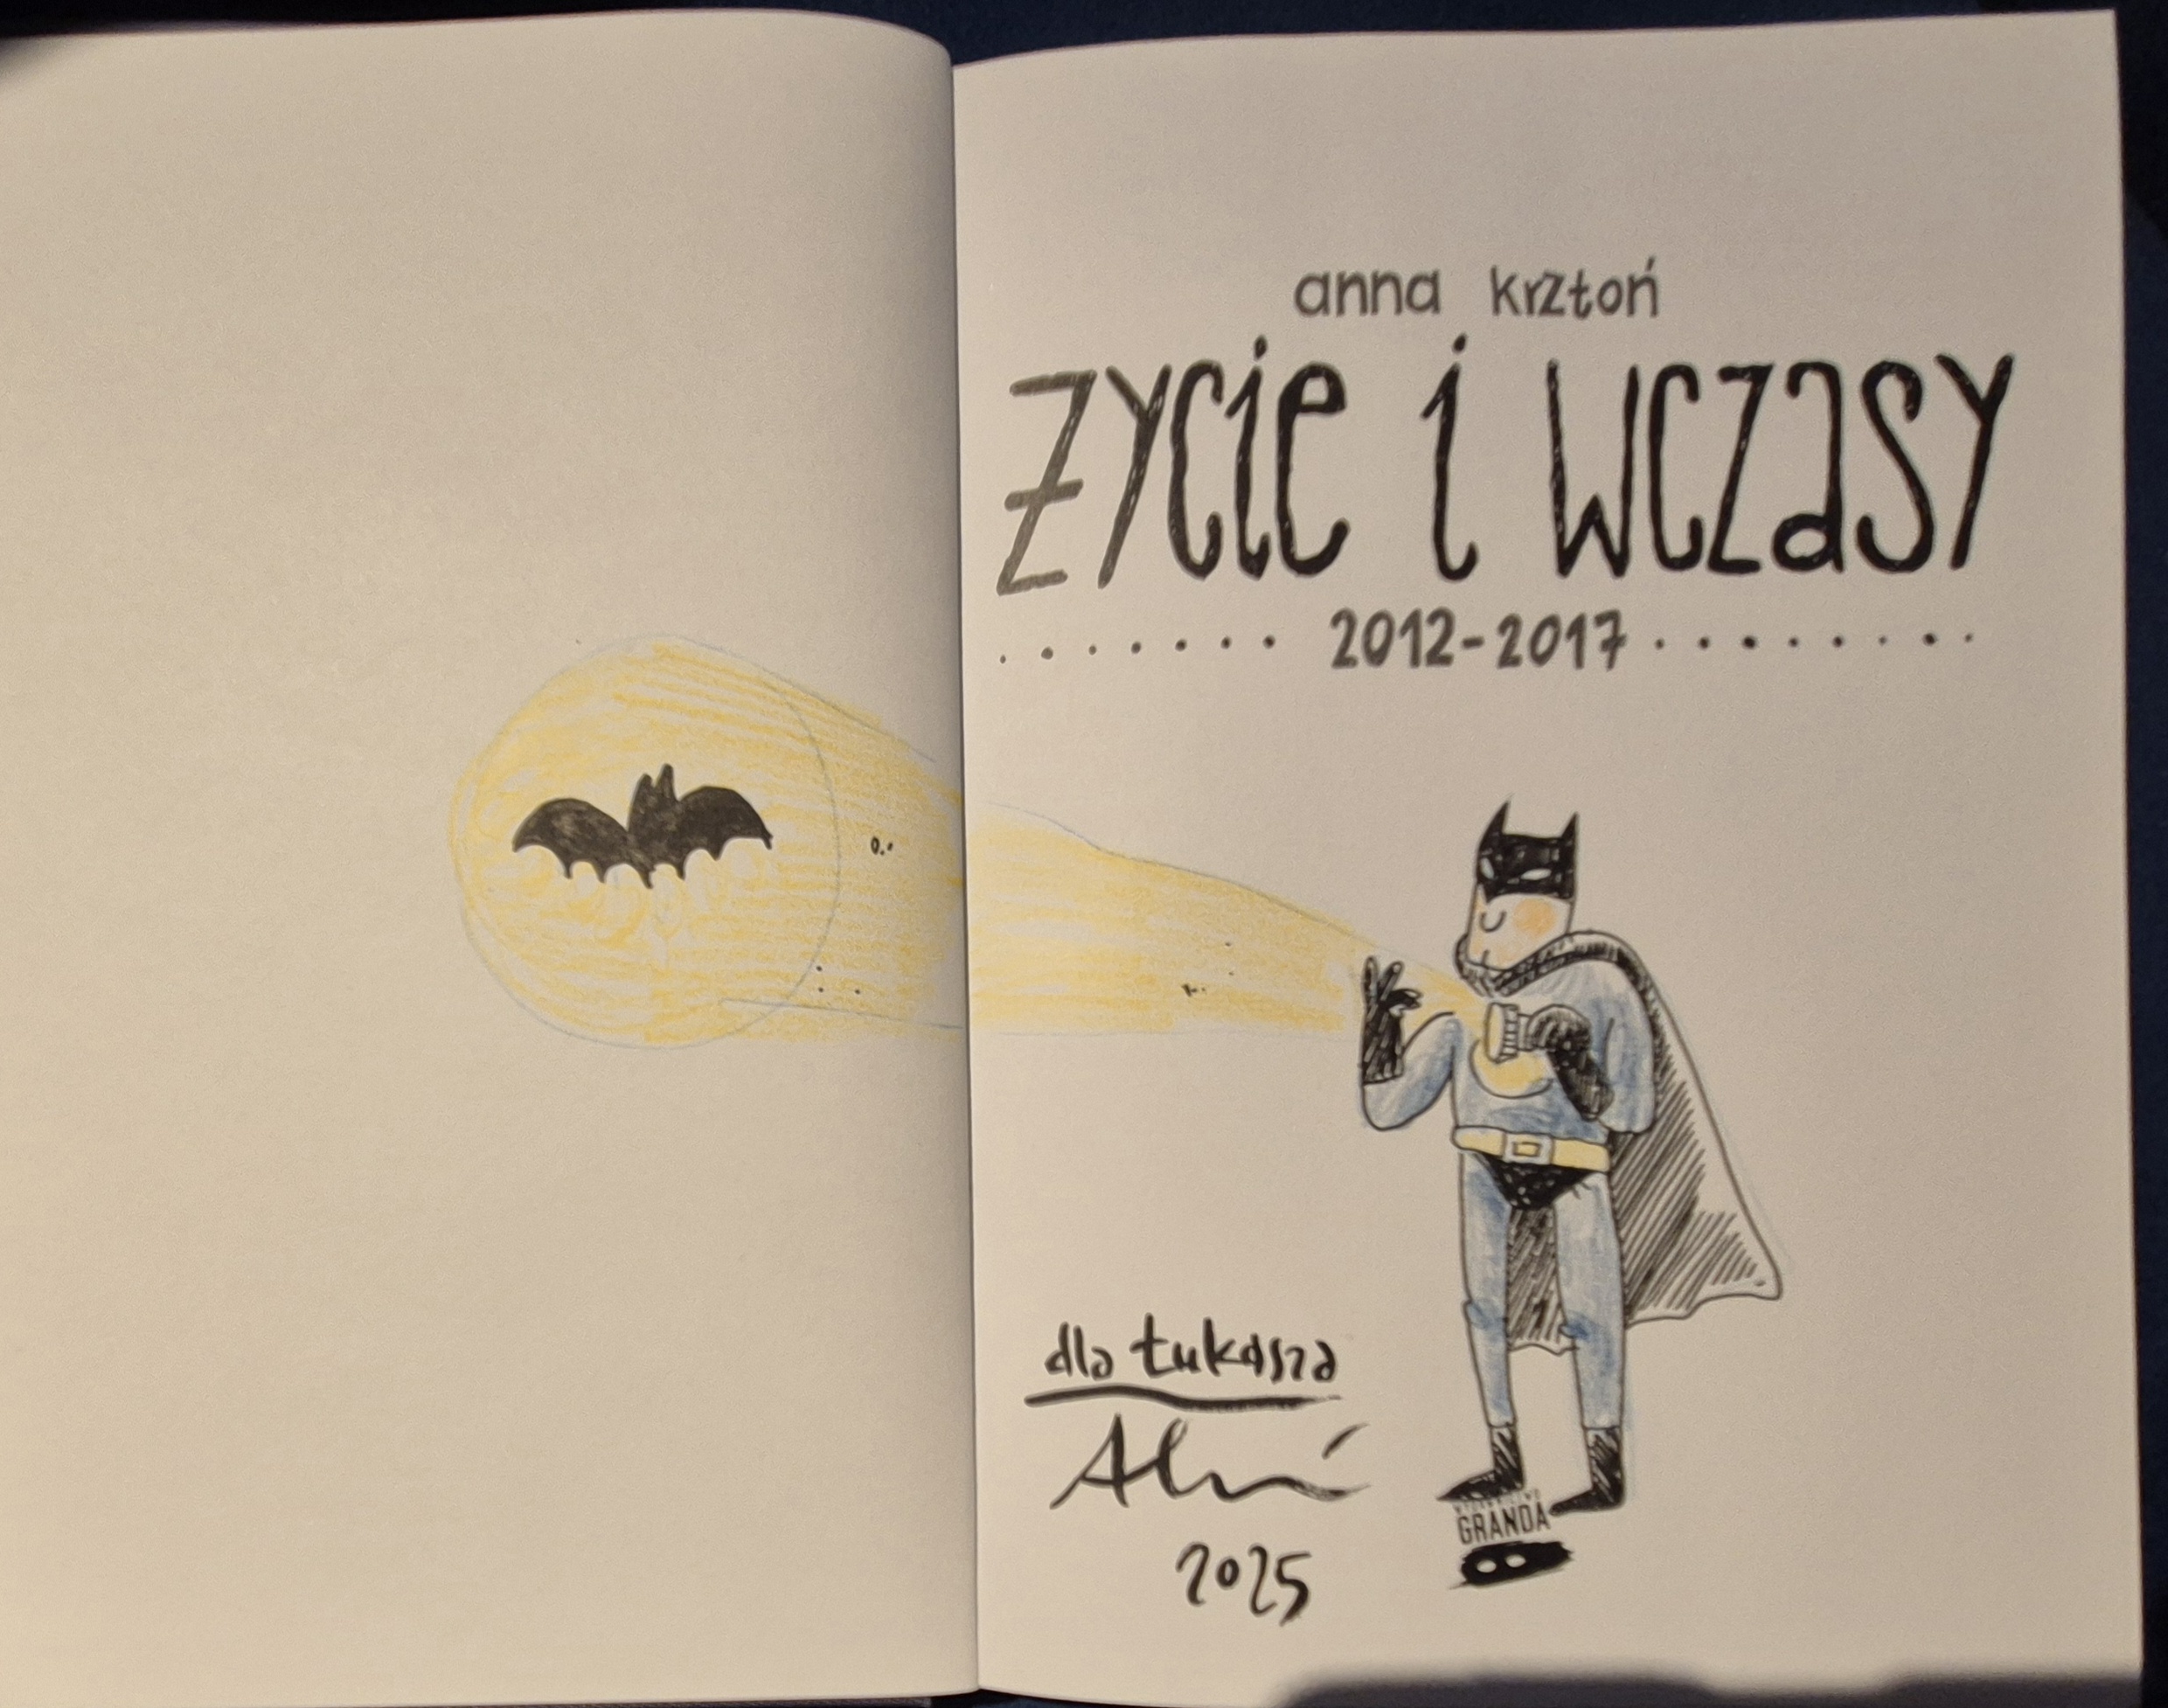 anna krztoń
Życie i wczasy
2012-2017
dla Łukasza
2025
WYDAWNICTWO
GRANDA